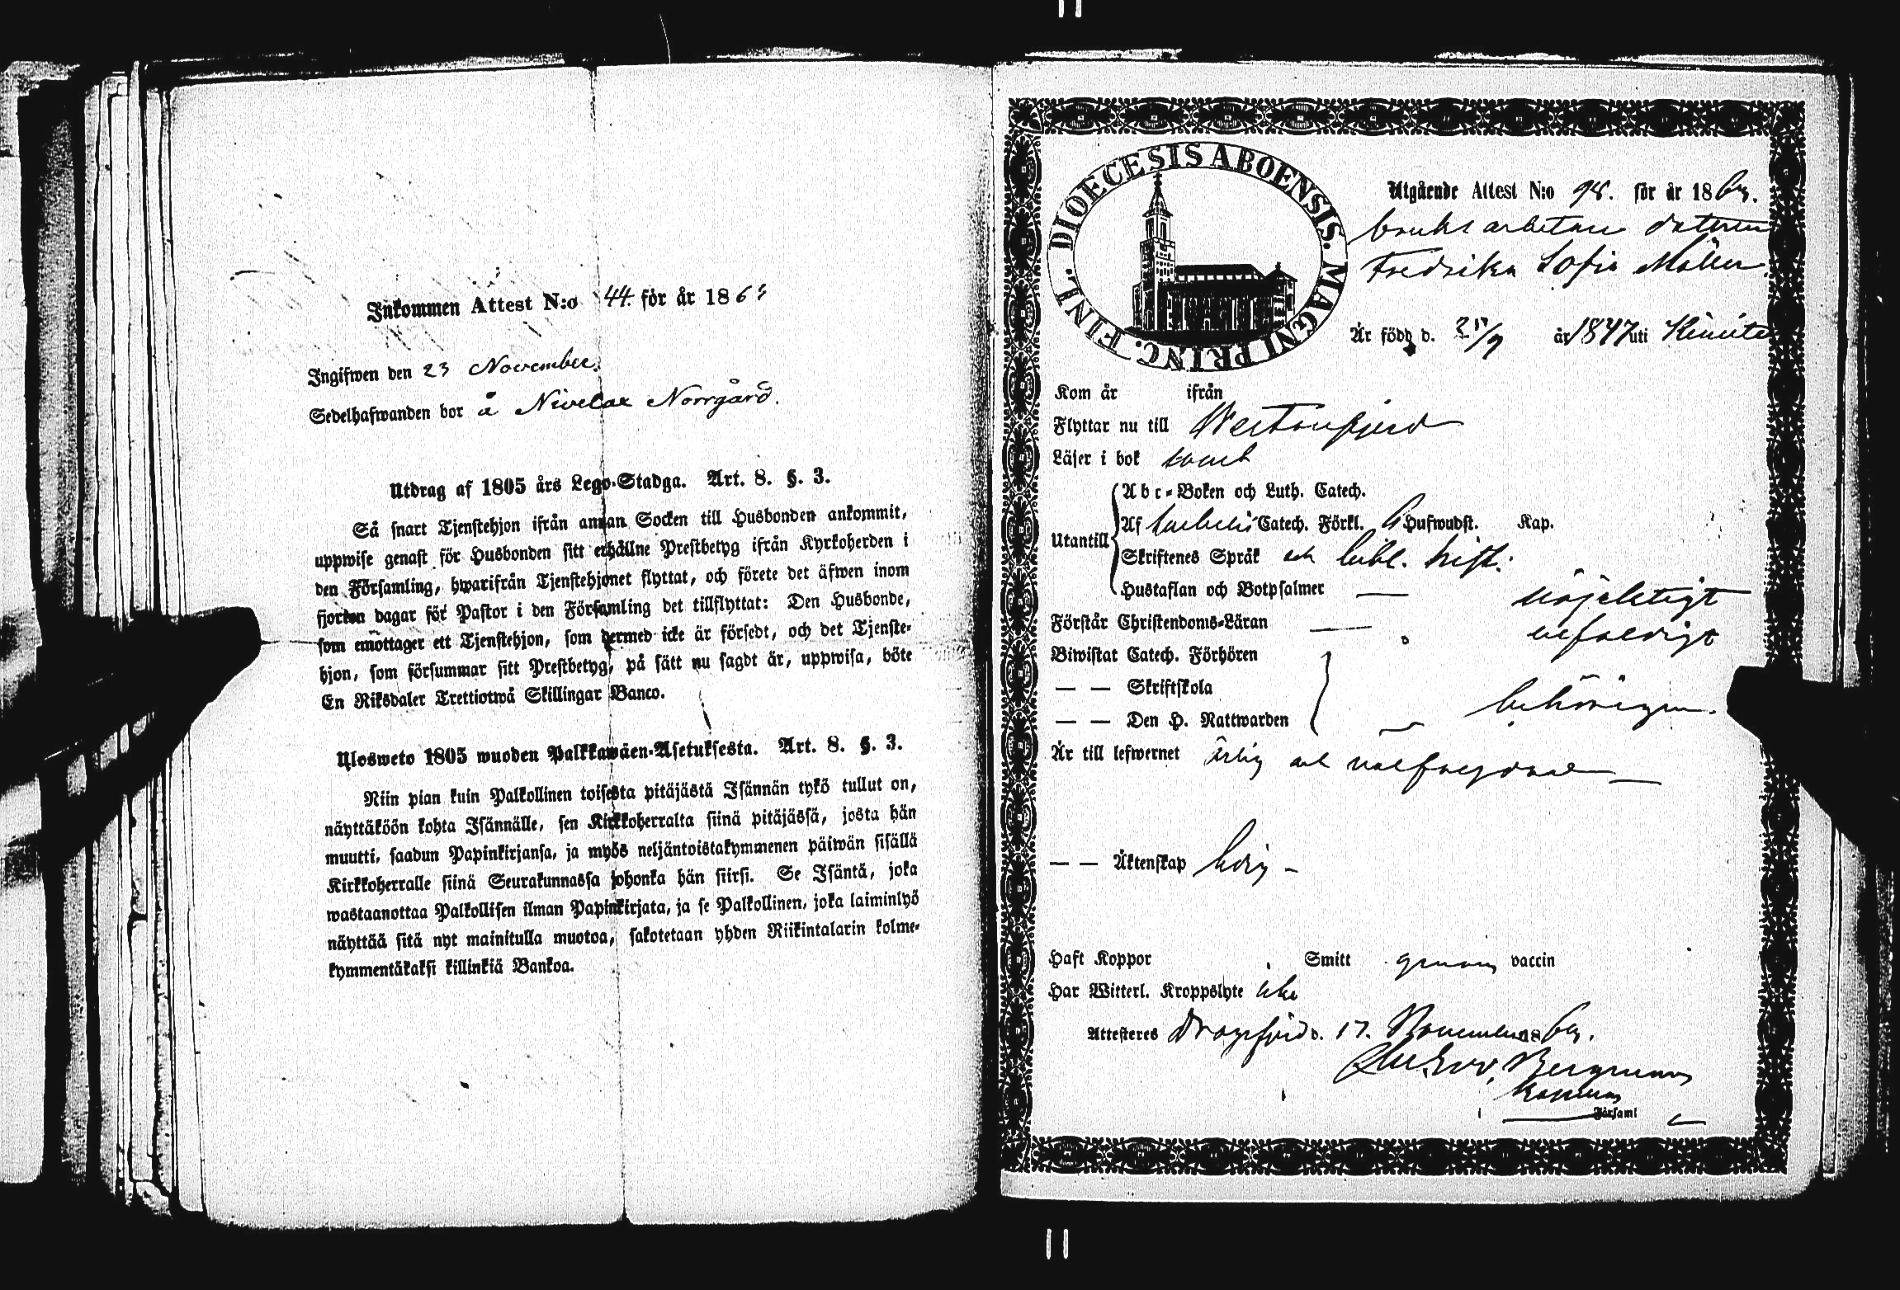 Inkommen Attest N:o 44 för år 186
Ingifwen den 23 November.
Sedelhafwanden bor å Nivelax Norrgård.
Utdrag af 1805 års Lego-Stadga. Art. 8. §. 3.
Så snart Tjenstehjon ifrån annan Socken till Husbonden ankommit,
uppwise genast för Husbonden sitt erhållne Prestbetyg ifrån Kyrkoherden i
den Församling, hwarifrån Tjenstehjonet flyttat, och förete det äfwen inom
fjorton dagar för Pastor i den Församling det tillflyttat: Den Husbonde,
som emottager ett Tjenstehjon, som dermed icke är försedt, och det Tjenste-
hjon, som försummar sitt Prestbetyg, på sätt nu sagdt är, uppwisa, böte
En Riksdaler Trettiotwå Skillingar Banco.
Ulosweto 1805 wuoden Palkkawäen-Asetuksesta. Art. 8. §. 3.
Niin pian kuin Palkollinen toisesta pitäjästä Isännän tykö tullut on,
näyttäköön kohta Isännälle, sen Kirkkoherralta siinä pitäjässä, josta hän
muutti, saadun Papinkirjansa, ja myös neljäntoistakymmenen päiwän sisällä
Kirkkoherralle siinä Seurakunnassa johonka hän siirsi. Se Isäntä, joka
wastaanottaa Palkollisen ilman Papinkirjata, ja se Palkollinen, joka laiminlyö
näyttää sitä nyt mainitulla muotoa, sakotetaan yhden Riikintalarin kolme-
kymmentäkaksi killinkiä Bankoa.
DIOECESIS ABOENSIS. MAGNI PRINC. FINL.
Utgående Attest N:o 98. för år 18
bruks arbetare dottren
Fredrika Sofia Möller
Är född d. /9 år 1847 uti Kimito
Kom år ifrån
Flyttar nu till Westanfjerd
Läser i bok svensk
Utantill
Abc-Boken och Luth. Catech.
Af Catech. Förkl. 6 Hufwudst. Kap.
Skriftenes Språk och bibl. hist.
Hustaflan och Botpsalmer — nöjeligt
Förstår Christendoms-Läran —
Biwistat Catech. Förhören
— — Skriftskola
— — Den H. Nattwarden behörigen.
Är till lefwernet ärlig och välfrejdad —
— — Äktenskap ledig —
Haft Koppor Smitt genom vaccin
Har Witterl. Kroppslyte icke
Attesteres Dragsfjerd d. 17. November 18
Bergman
Församl